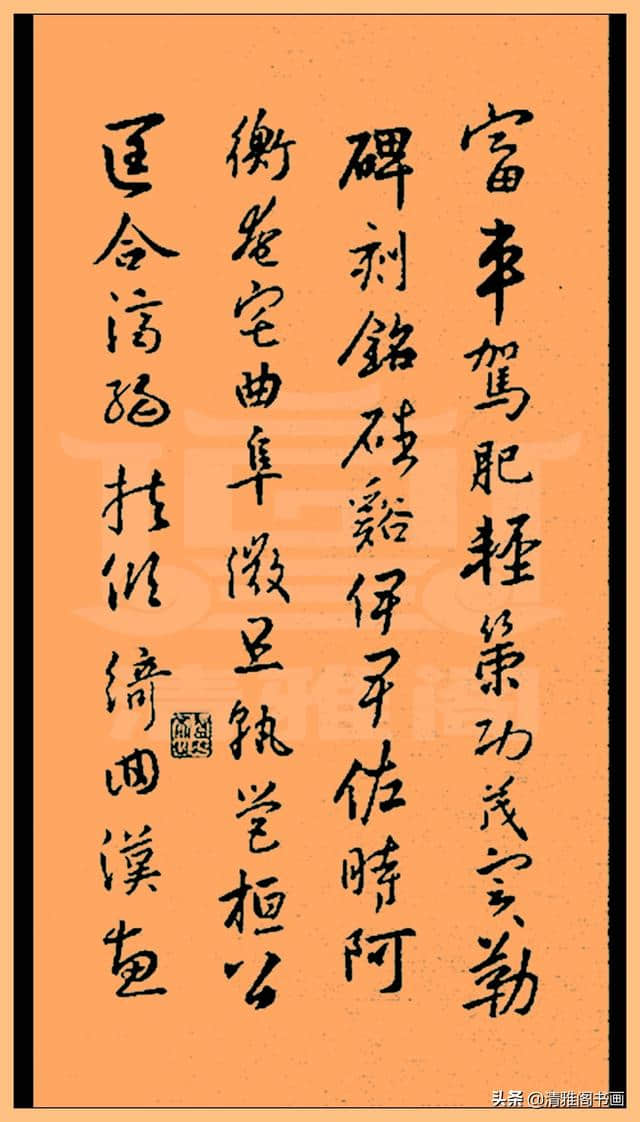 富車駕肥輕策功茂實勒
碑刻銘磻谿伊尹佐時阿
衡奄宅曲阜微旦孰營桓公
匡合濟弱扶傾綺回漢惠
清雅阁
头条 @清雅阁书画